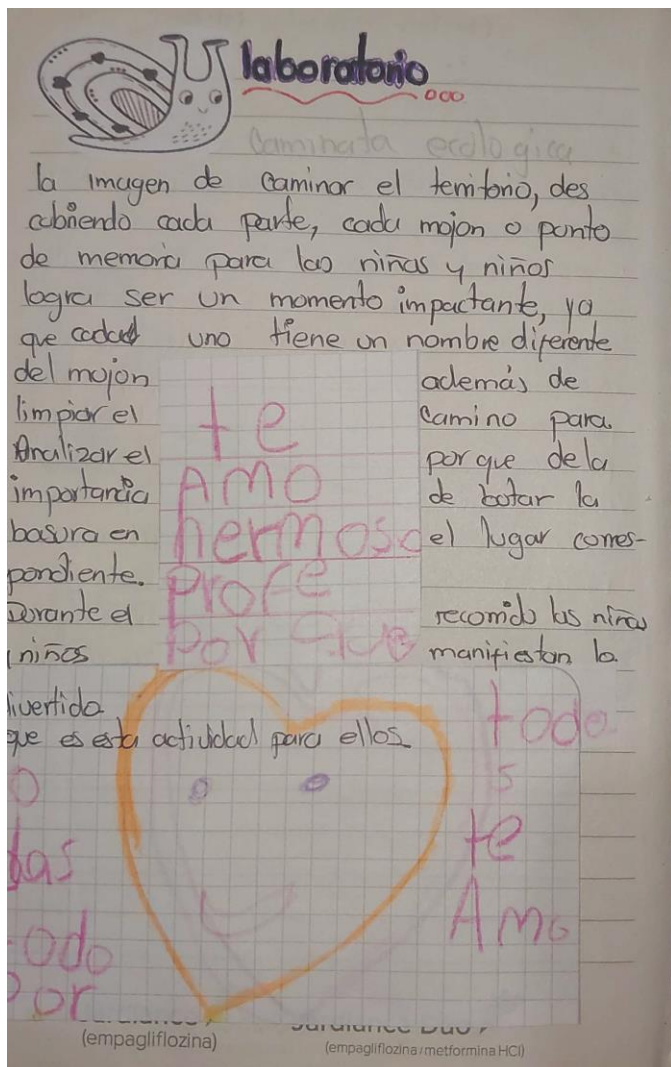 laboratorio...
Caminata ecologica
la imagen de caminar el territorio, des
cubriendo cada parte, cada mojon o punto
de memoria para las niñas y niños
logra ser un momento impactante, ya
que cada uno tiene un nombre diferente
del mojon además de
limpiar el camino para
Analizar el por que de la
importancia de botar la
basura en el lugar corres-
pondiente.
Durante el recorrido las niñas
niños manifiestan lo
te
AMO
hermosa
profe
por que
divertida
que es esta actividad para ellos
todo
s
te
AMO
O
das
odo
por
(empagliflozina)
Jardiance DUO
(empagliflozina/metformina HCl)